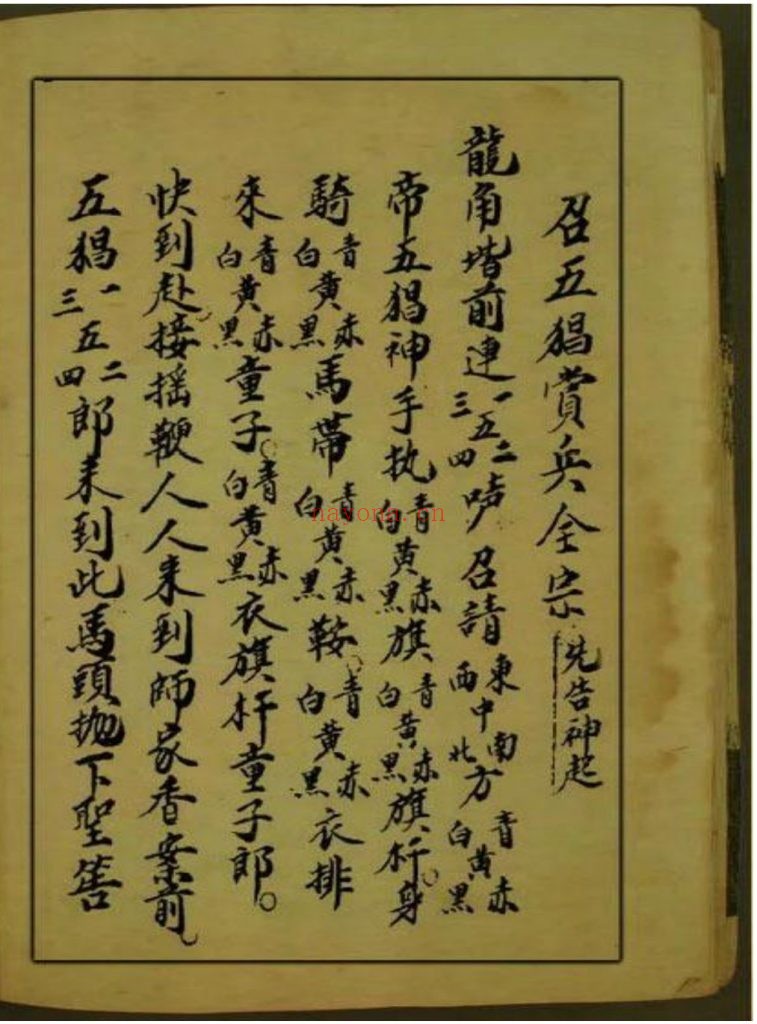 召五猖賞兵全宗 先告神起
龍角堦前連一二五三四声召請東南中西北方青赤黄白黑
帝五猖神手执青赤黄白黑旗青赤黄白黑旗杆。身
騎青赤黄白黑馬帶青赤黄白黑鞍。青赤黄白黑衣排
來青赤黄白黑童子。青赤黄白黑衣旗杆童子郎。
快到赴接摇鞭人人来到師家香案前。
五猖一二五三四郎来到此馬頭抛下聖筶